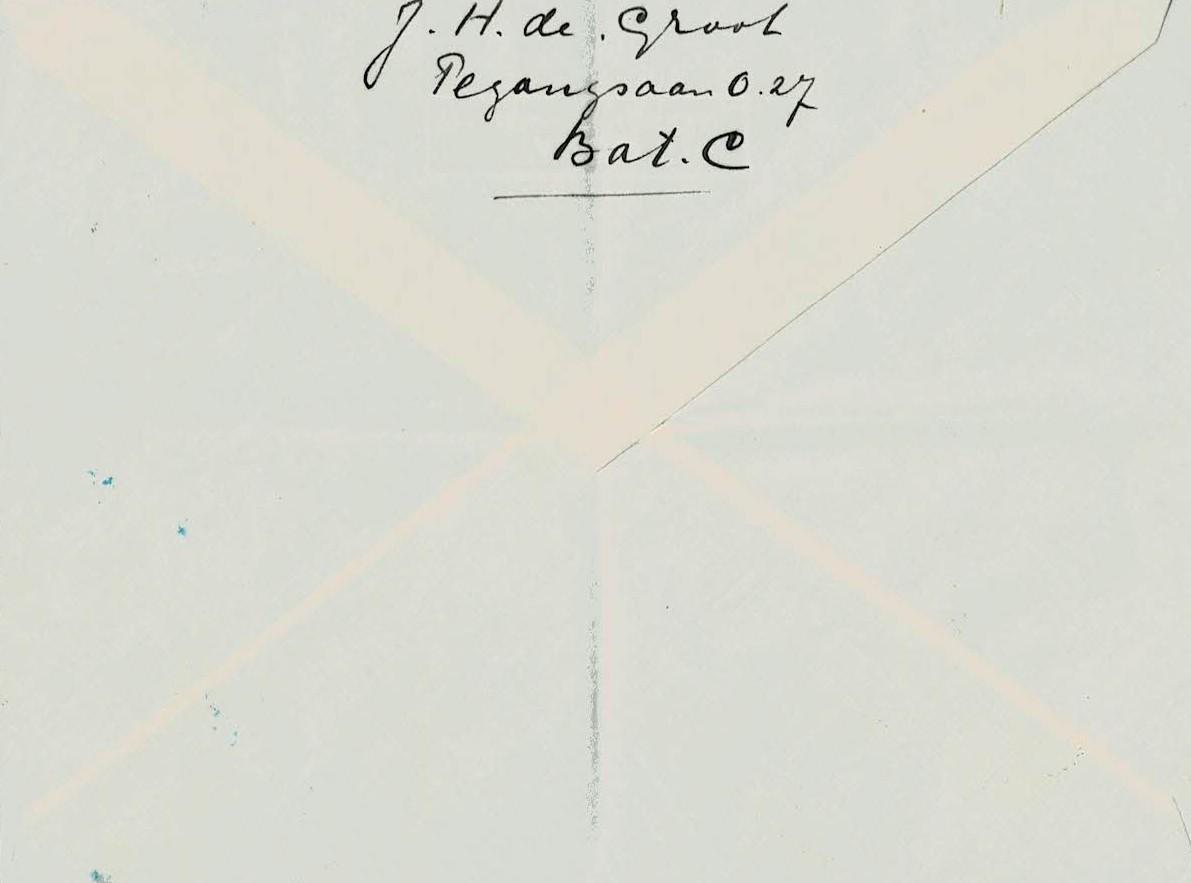 J. H. de Groot
Pegangsaan O. 27
Bat. C